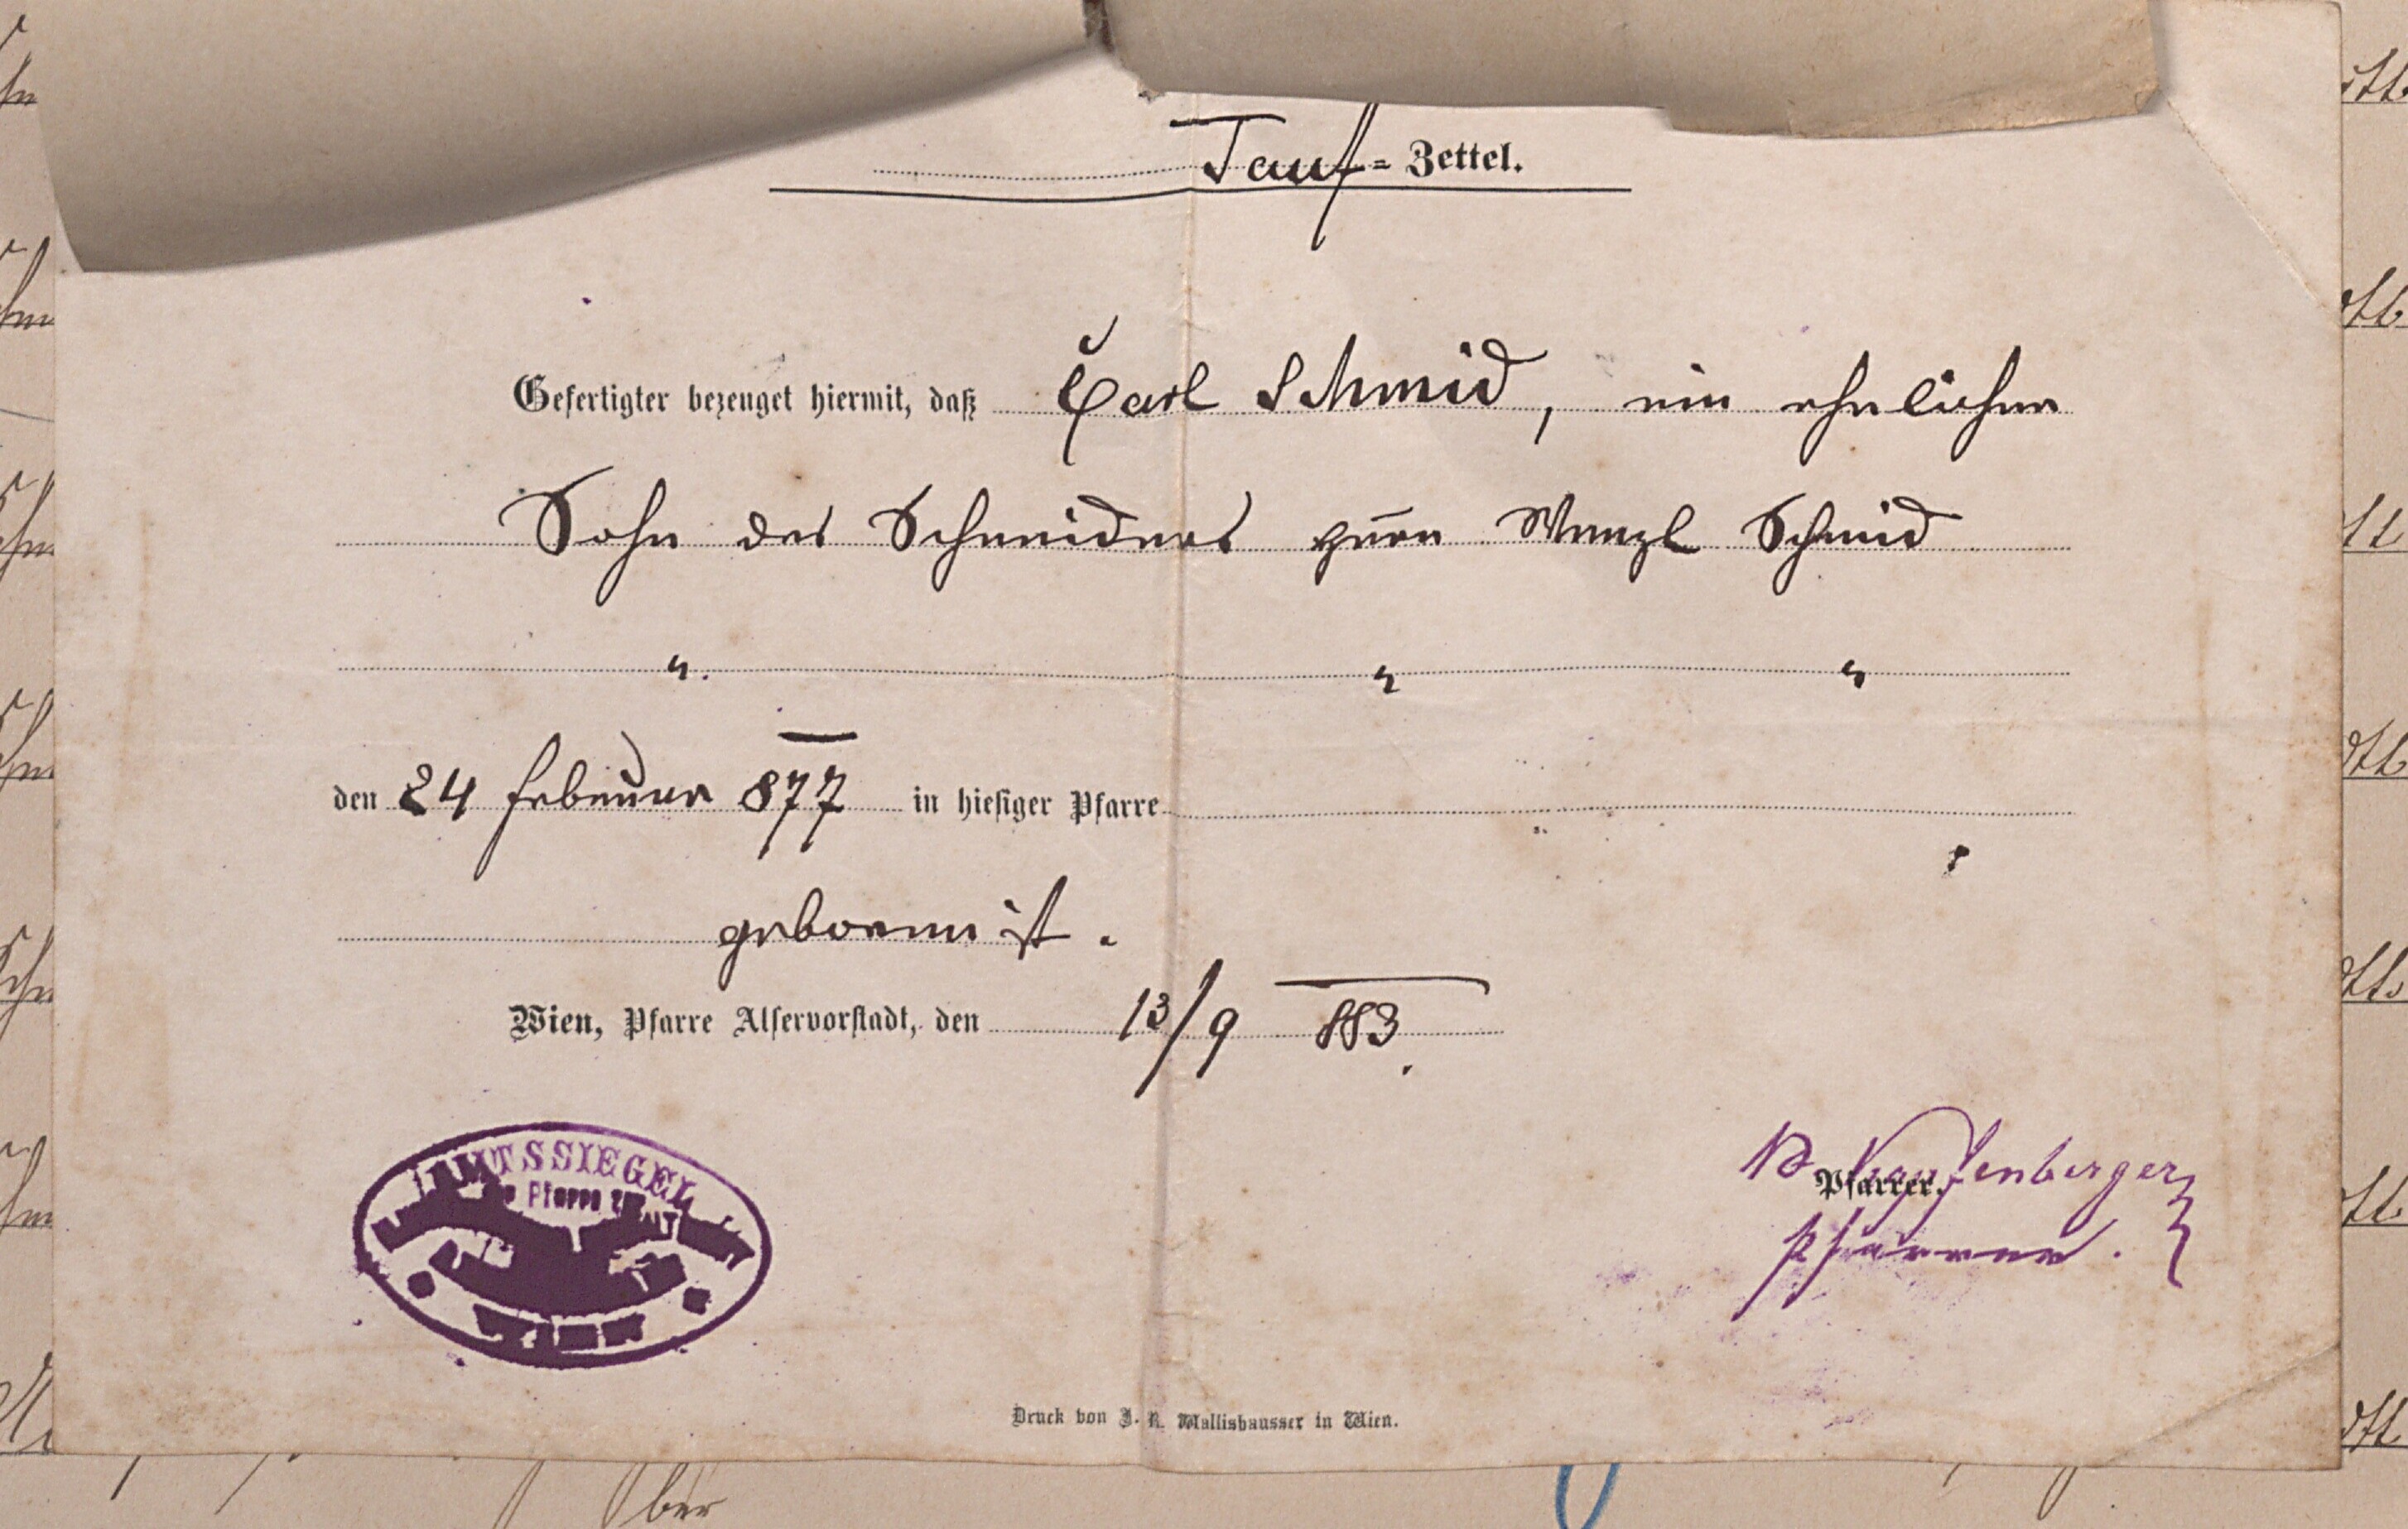 Tauf-Zettel.
Gefertigter bezeuget hiermit, daß Carl Schmid, ein ehelicher
Sohn des Schneiders Herrn Wenzl Schmid
den 24 Februar 877 in hiesiger Pfarre
geboren ist.
Wien, Pfarre Alservorstadt, den 13/9 883.
AMTSSIEGEL
Pfarre
WIEN
Pfarrer.
Pfarrer.
Druck von J. B. Wallishausser in Wien.
ber